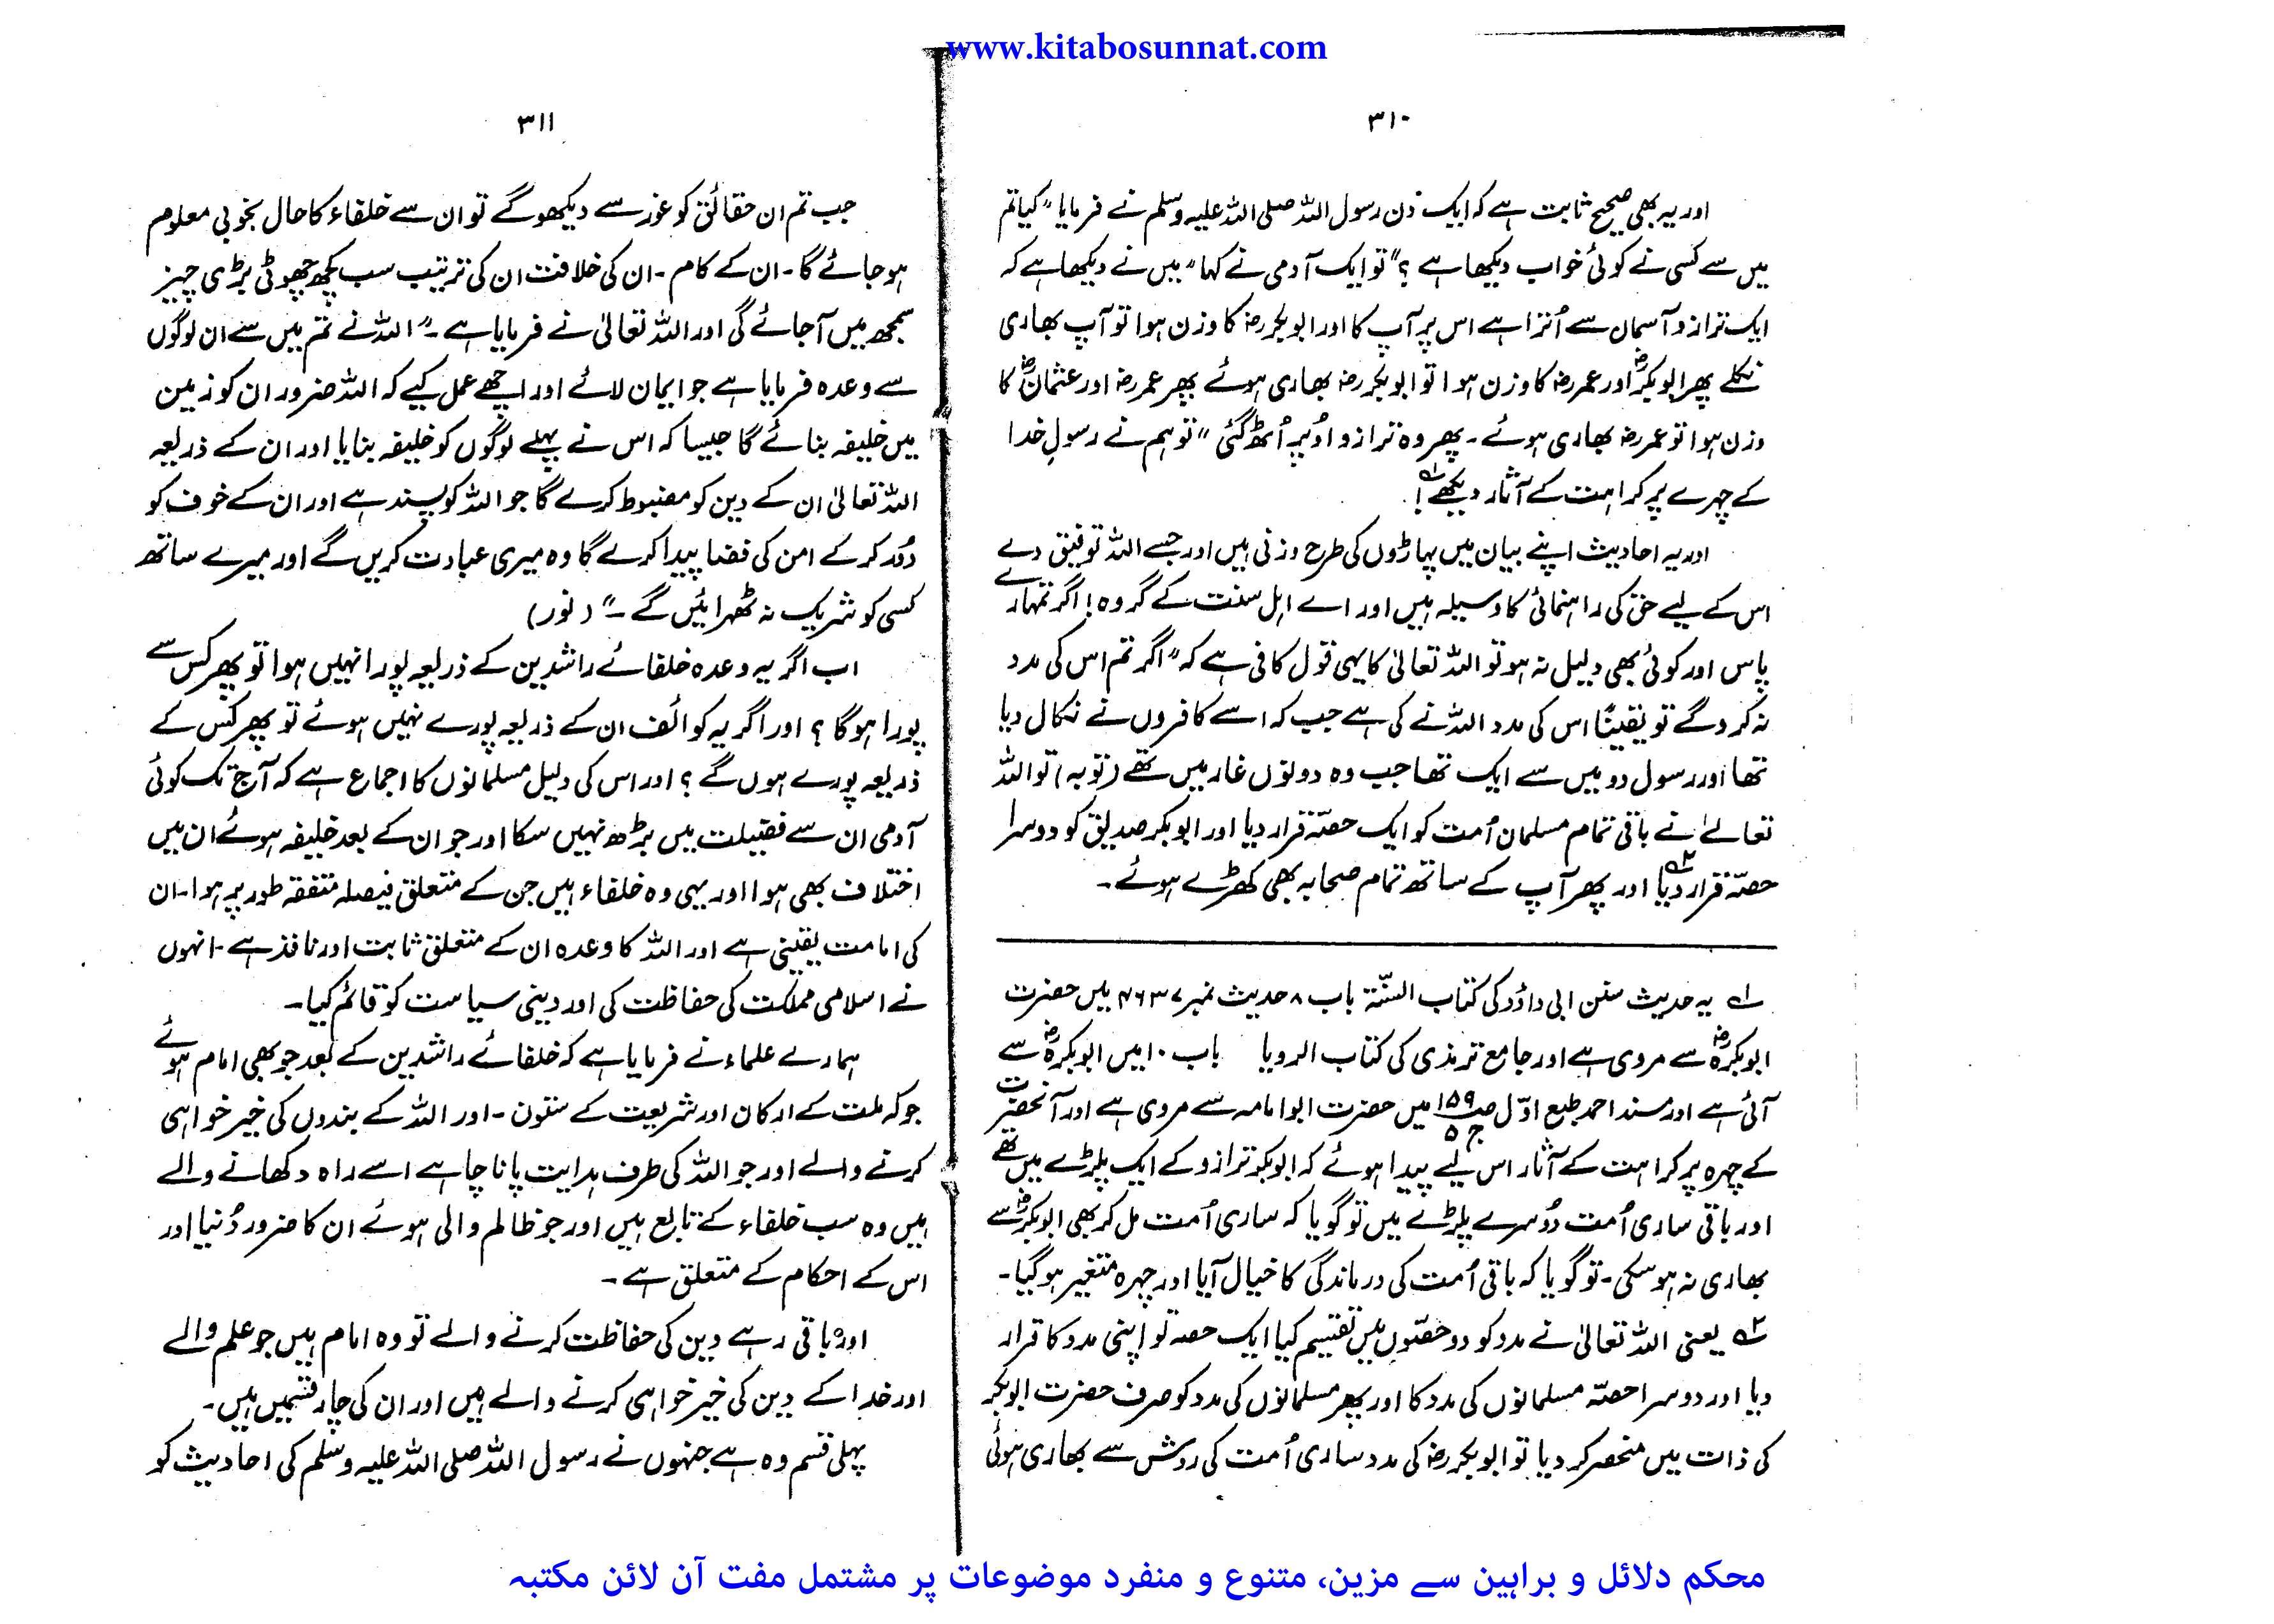 www.kitabosunnat.com
۳۱۰
اور یہ بھی صحیح ثابت ہے کہ ایک دن رسول اللہ صلی اللہ علیہ وسلم نے فرمایا "کیا تم
میں سے کسی نے کوئی خواب دیکھا ہے ؟" تو ایک آدمی نے کہا "میں نے دیکھا ہے کہ
ایک ترازو آسمان سے اُترا ہے اس پر آپ کا اور ابوبکر رضہ کا وزن ہوا تو آپ بھاری
نکلے پھر ابوبکرؓ اور عمر رضہ کا وزن ہوا تو ابوبکر رضہ بھاری ہوئے پھر عمر رضہ اور عثمانؓ کا
وزن ہوا تو عمر رضہ بھاری ہوئے ۔ پھر وہ ترازو اوُپر اُٹھ گئی" تو ہم نے رسولِ خدا
کے چہرے پر کراہت کے آثار دیکھے ۱ ؎!
اور یہ احادیث اپنے بیان میں پہاڑوں کی طرح وزنی ہیں اور جسے اللہ توفیق دے
اس کے لیے حق کی راہنمائی کا وسیلہ ہیں اور اے اہل سنت کے گروہ! اگر تمہارے
پاس اور کوئی بھی دلیل نہ ہو تو اللہ تعالیٰ کا یہی قول کافی ہے کہ "اگر تم اس کی مدد
نہ کرو گے تو یقیناً اس کی مدد اللہ نے کی ہے جب کہ اسے کافروں نے نکال دیا
تھا اور رسول دو میں سے ایک تھا جب وہ دونوں غار میں تھے (توبہ) تو اللہ
تعالےٰ نے باقی تمام مسلمان اُمت کو ایک حصّہ قرار دیا اور ابوبکر صدیق کو دوسرا
حصّہ قرار دیا ۲ ؎ اور پھر آپ کے ساتھ تمام صحابہ بھی کھڑے ہوئے ۔
۱ ؎ یہ حدیث سنن ابی داؤد کی کتاب السنّۃ باب ۸ حدیث نمبر ۴۶۳۷ میں حضرت
ابوبکرہؓ سے مروی ہے اور جامع ترمذی کی کتاب الرویا باب ۱۰ میں ابوبکرہؓ سے
آئی ہے اور مسند احمد طبع اوّل صـ ۱۵۹ ج ۵ میں حضرت ابوامامہ سے مروی ہے اور آنحضرت
کے چہرہ پر کراہت کے آثار اس لیے پیدا ہوئے کہ ابوبکرؓ ترازو کے ایک پلڑے میں تھے
اور باقی ساری اُمت دُوسرے پلڑے میں تو گویا کہ ساری اُمت مل کر بھی ابوبکرؓ سے
بھاری نہ ہو سکی ۔ تو گویا کہ باقی اُمت کی درماندگی کا خیال آیا اور چہرہ متغیر ہو گیا ۔
۲ ؎ یعنی اللہ تعالیٰ نے مدد کو دو حصّوں میں تقسیم کیا ایک حصہ تو اپنی مدد کا قرار
دیا اور دوسرا حصّہ مسلمانوں کی مدد کا اور پھر مسلمانوں کی مدد کو صرف حضرت ابوبکر
کی ذات میں منحصر کر دیا تو ابوبکر رضہ کی مدد ساری اُمت کی روش سے بھاری ہوئی
۳۱۱
جب تم ان حقائق کو غور سے دیکھو گے تو ان سے خلفاء کا حال بخوبی معلوم
ہو جائے گا ۔ ان کے کام ۔ ان کی خلافت ان کی ترتیب سب کچھ چھوٹی بڑی چیز
سمجھ میں آجائے گی اور اللہ تعالیٰ نے فرمایا ہے ۔" اللہ نے تم میں سے ان لوگوں
سے وعدہ فرمایا ہے جو ایمان لائے اور اچھے عمل کیے کہ اللہ ضرور ان کو زمین
میں خلیفہ بنائے گا جیسا کہ اس نے پہلے لوگوں کو خلیفہ بنایا اور ان کے ذریعہ
اللہ تعالیٰ ان کے دین کو مضبوط کرے گا جو اللہ کو پسند ہے اور ان کے خوف کو
دُور کر کے امن کی فضا پیدا کرے گا وہ میری عبادت کریں گے اور میرے ساتھ
کسی کو شریک نہ ٹھرائیں گے ۔" (نور)
اب اگر یہ وعدہ خلفائے راشدین کے ذریعہ پورا نہیں ہوا تو پھر کس سے
پورا ہو گا ؟ اور اگر یہ کوائف ان کے ذریعہ پورے نہیں ہوئے تو پھر کس کے
ذریعہ پورے ہوں گے ؟ اور اس کی دلیل مسلمانوں کا اجماع ہے کہ آج تک کوئی
آدمی ان سے فضیلت میں بڑھ نہیں سکا اور جو ان کے بعد خلیفہ ہوئے ان میں
اختلاف بھی ہوا اور یہی وہ خلفاء ہیں جن کے متعلق فیصلہ متفقہ طور پر ہوا ۔ ان
کی امامت یقینی ہے اور اللہ کا وعدہ ان کے متعلق ثابت اور نافذ ہے ۔ انہوں
نے اسلامی مملکت کی حفاظت کی اور دینی سیاست کو قائم کیا ۔
ہمارے علماء نے فرمایا ہے کہ خلفائے راشدین کے بعد جو بھی امام ہوئے
جو کہ ملت کے ارکان اور شریعت کے ستون ۔ اور اللہ کے بندوں کی خیر خواہی
کرنے والے اور جو اللہ کی طرف ہدایت پانا چاہے اسے راہ دکھانے والے
ہیں وہ سب خلفاء کے تابع ہیں اور جو ظالم والی ہوئے ان کا ضرور دُنیا اور
اس کے احکام کے متعلق ہے ۔
اور باقی رہے دین کی حفاظت کرنے والے تو وہ امام ہیں جو علم والے
اور خدا کے دین کی خیر خواہی کرنے والے ہیں اور ان کی چار قسمیں ہیں ۔
پہلی قسم وہ ہے جنہوں نے رسول اللہ صلی اللہ علیہ وسلم کی احادیث کو
محکم دلائل و براہین سے مزین، متنوع و منفرد موضوعات پر مشتمل مفت آن لائن مکتبہ